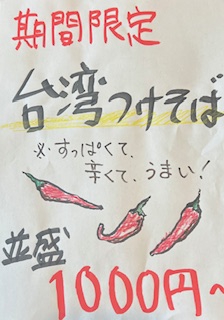 期間限定
台湾つけそば
※すっぱくて、
辛くて、うまい!
並盛
1000円~